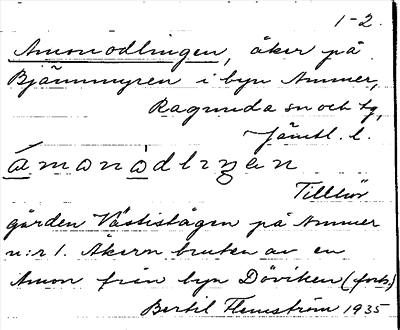 1-2.
Amonodlingen, åker på
Bjämmyren i byn Ammer,
Ragunda sn och tg,
Jämtl. l.
ámonòdlıŋen
Tillhör
gården Västistågen på Ammer
n:r 1. Åkern bruten av en
Amon från byn Döviken (forts.)
Bertil Flemström 1935